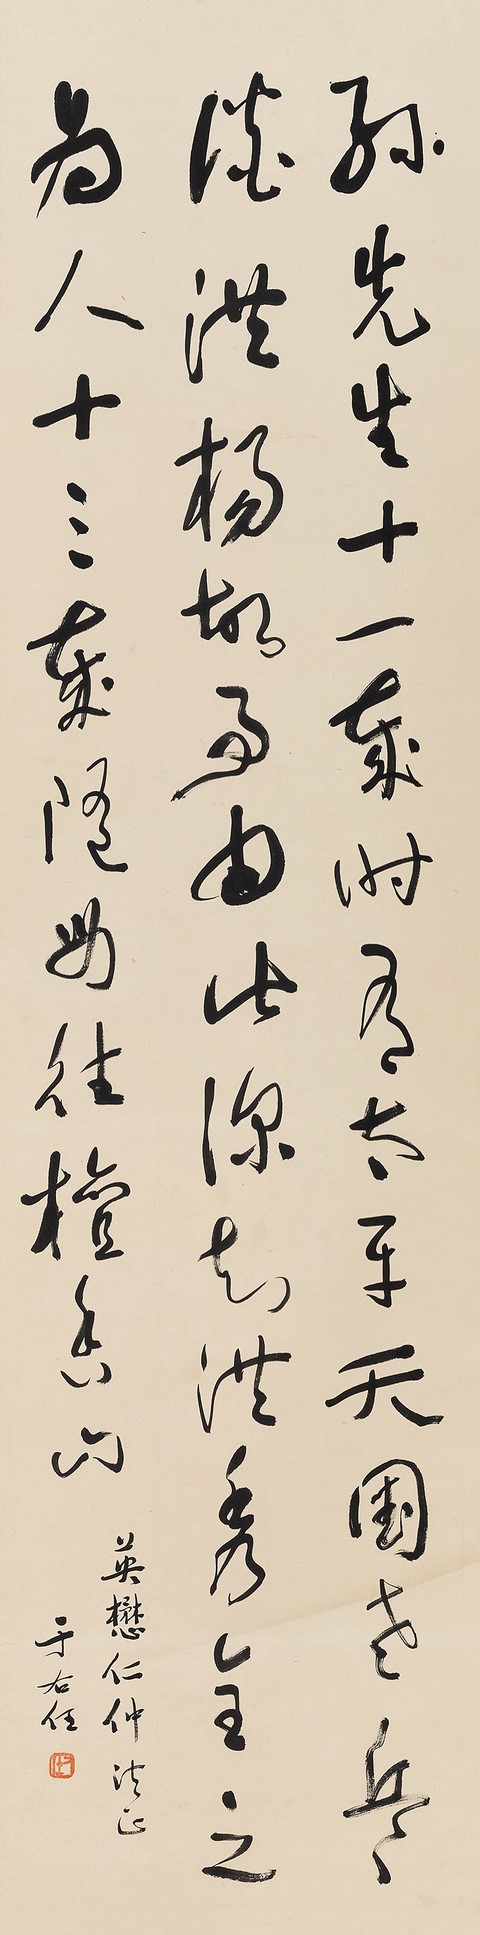 孫先生十一歲時有太平天國老兵
談洪楊故事由此深知洪秀全之
為人十三歲隨母往檀香山
英懋仁仲法正
于右任